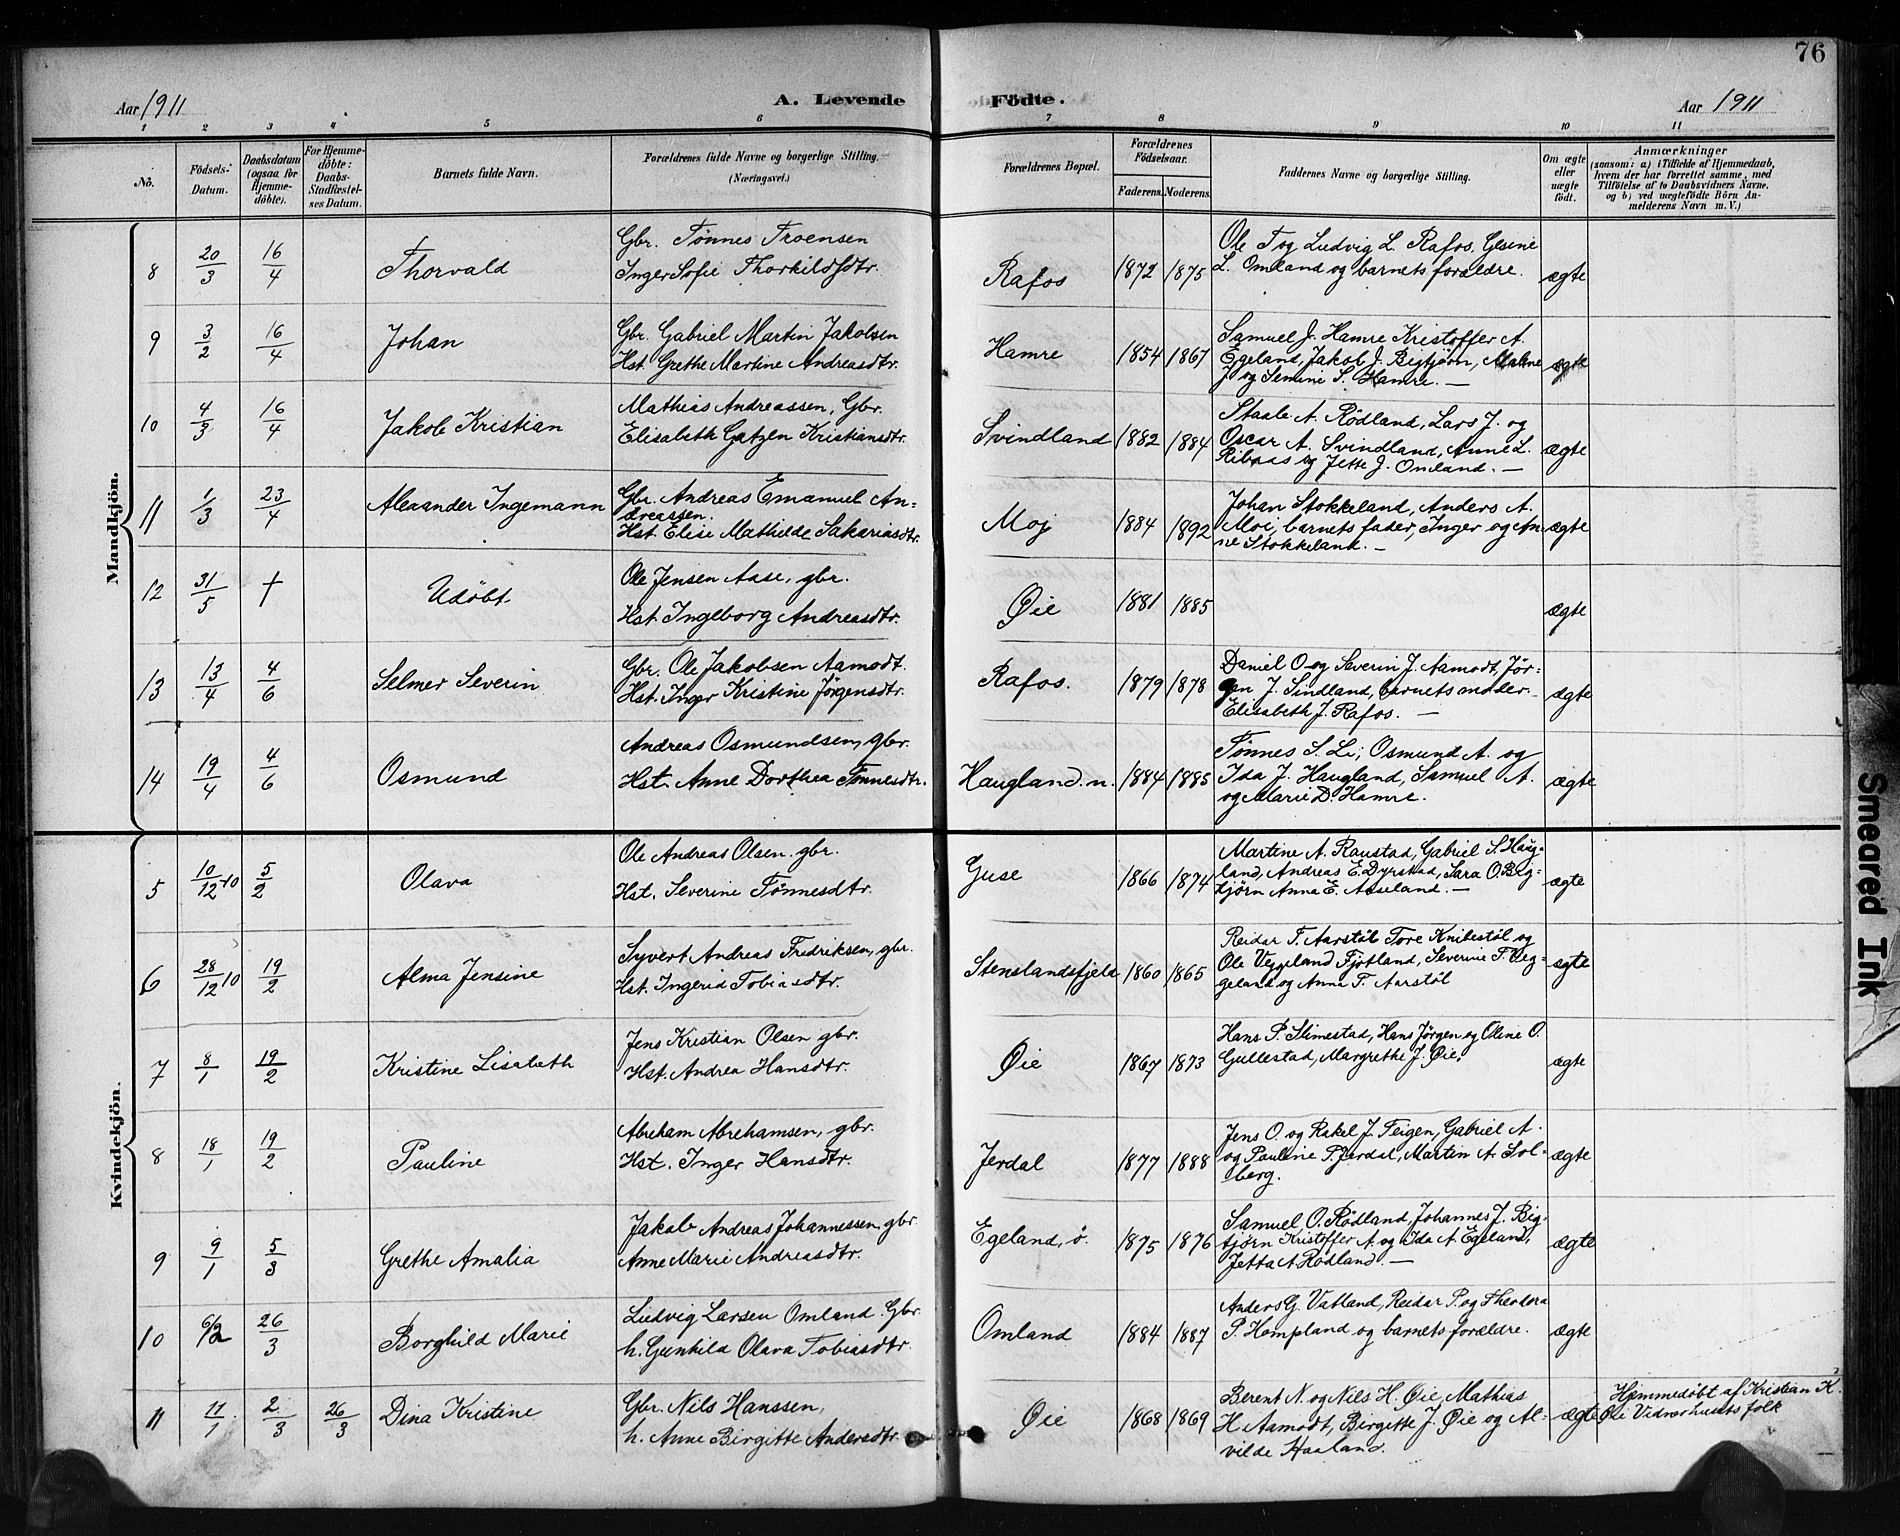 76
Aar 1911
A. Levende
Födte.
Aar 1911
1 2 3 4 5 6 7 8 9 10 11
No.
Födsels-
Datum.
Daabsdatum
(ogsaa for
Hjemme-
döbte).
For Hjemme-
döbte:
Daabs-
Stadfæstel-
ses Datum.
Barnets fulde Navn.
Forældrenes fulde Navne og borgerlige Stilling.
(Næringsvei.)
Forældrenes Bopæl.
Forældrenes
Födselsaar.
Faderens. Moderens.
Faddernes Navne og borgerlige Stilling.
Om ægte
eller
uægte
födt.
Anmærkninger
(saasom: a) i Tilfælde af Hjemmedaab,
hvem der har forrettet samme, med
Tilföielse af to Daabsvidners Navne,
og b) ved uægtefödte Börn An-
melderens Navn m. V.)
Mandkjön.
8 20/3 16/4 Thorvald
Gbr. Tönnes Troensen
Inger Sofie Thorkildsdtr.
Rafos 1872 1875
Ole T og Ludvig L. Rafos, Gesine
L. Omland og barnets forældre.
ægte
9 3/2 16/4 Johan
Gbr. Gabriel Martin Jakobsen
Hst. Grethe Martine Andreasdtr.
Hamre 1854 1867
Samuel J. Hamre Kristoffer A.
Egeland, Jakob J. Bigtjörn, Malene
J og Semine S. Hamre. —
ægte
10 4/3 16/4 Jakob Kristian
Mathias Andreassen, Gbr.
Elisabeth Gatzen Kristiansdtr.
Svindland 1882 1884
Staale A. Rödland, Lars J. og
Oscar A. Svindland, Anne L.
Ribaas og Jette J. Omland. —
ægte
11 1/3 23/4 Alexander Ingemann
Gbr. Andreas Emanuel An-
dreassen.
Hst. Elise Mathilde Sakariasdtr.
Moj 1884 1892
Johan Stokkeland, Anders A.
Moi, barnets fader, Inger og An-
ne Stokkeland. —
ægte
12 31/5 † Udöbt
Ole Jensen Aase, gbr.
Hst. Ingeborg Andreasdtr.
Øie 1881 1885
ægte
13 13/4 4/6 Selmer Severin
Gbr. Ole Jakobsen Aamodt.
Hst. Inger Kristine Jörgensdtr.
Rafos. 1879 1878
Daniel O og Severin J. Aamodt, Jör-
gen J. Sindland, barnets moder
Elisabeth J. Rafos. —
ægte
14 19/4 4/6 Osmund
Andreas Osmundsen, gbr.
Hst. Anne Dorthea Tönnesdtr.
Haugland. n. 1884 1885
Tönnes S. Li, Osmund A. og
Ida J. Haugland, Samuel A.
og Marie D. Hamre.
ægte
Kvindekjön.
5 10/12 10 5/2 Olava
Ole Andreas Olsen. gbr.
Hst. Severine Tönnesdtr.
Guse 1866 1874
Martine A. Raustad, Gabriel S. Haug-
land, Andreas E. Dyrstad, Sara O. Big-
tjörn Anna E. Aaseland. —
ægte
6 28/12 10 19/2 Alma Jensine
Syvert Andreas Fredriksen, gbr.
Hst. Ingerid Tobiasdtr.
Stenslandsfjeld 1860 1865
Reidar F. Aarstöl Tore Knibestöl og
Ole Veggeland Fjotland, Severine T. Veg-
geland og Anna F. Aarstöl
ægte
7 8/1 19/2 Kristine Lisabeth
Jens Kristian Olsen gbr.
Hst. Andrea Hansdtr.
Øie 1867 1873
Hans P. Slimestad, Hans Jörgen og Oline O.
Gullestad, Margrethe J. Øie.
ægte
8 18/1 19/2 Pauline
Abreham Abrehamsen, gbr.
Hst. Inger Hansdtr.
Jerdal 1877 1888
Jens O. og Rakel J. Feigen, Gabriel A.
og Pauline P. Jerdal, Martin A. Sol-
berg.
ægte
9 9/1 5/3 Grethe Amalia
Jakob Andreas Johannessen, gbr.
Anne Marie Andreasdtr.
Egeland, ö. 1875 1876
Samuel O. Rödland, Johannes J. Big-
tjörn Kristoffer A. og Ida A Egeland,
Jetta A Rödland. —
ægte
10 6/2 26/3 Borghild Marie
Ludvig Larsen Omland. Gbr
h. Gunhild Olava Tobiasdtr.
Omland 1884 1887
Anders G. Vatland, Reidar P. og Theodora
P. Hompland og barnets forældre.
ægte
11 11/1 2/3 26/3 Dina Kristine
Gbr. Nils Hanssen,
h. Anne Birgitte Andersdtr.
Øie 1868 1869
Berent N. og Nils H. Øie, Mathias
H. Aamodt, Birgitte J. Øie og Al-
vilde Haaland.
ægte
Hjemmedöbt af Kristian K.
Øie Vidner husets folk
Smeared Ink